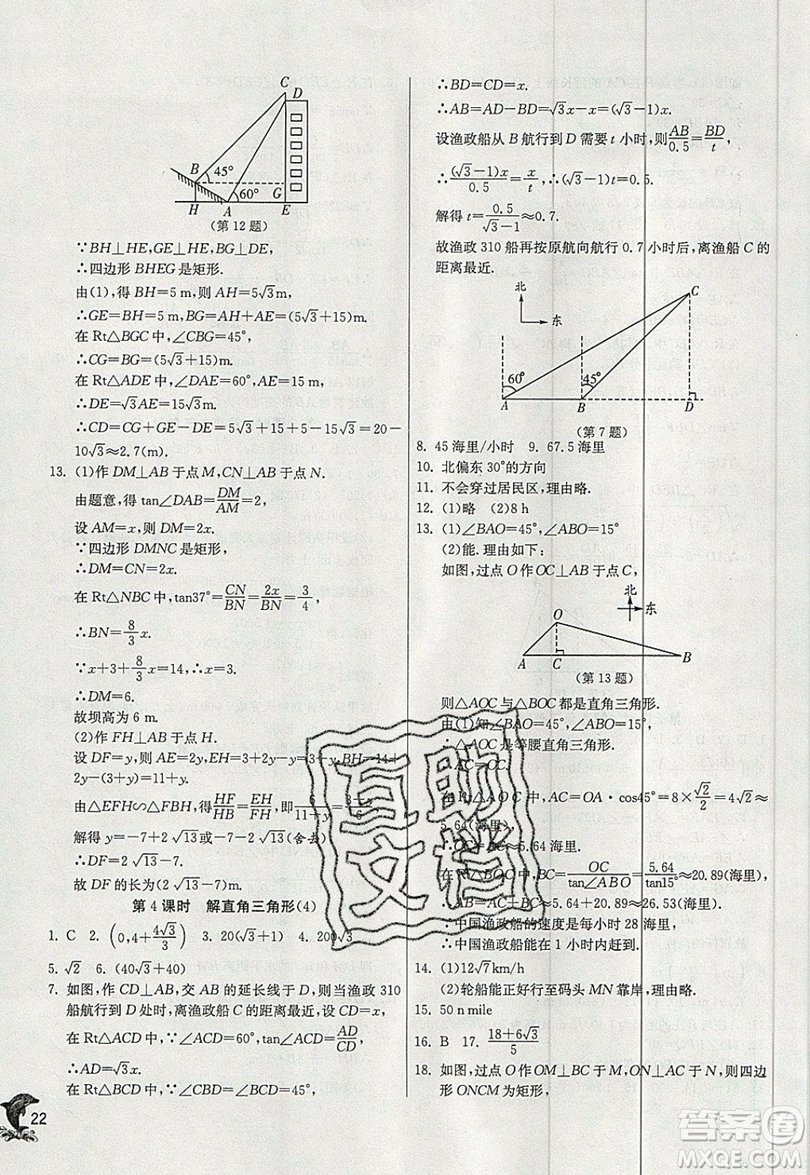 C
D
B
45°
60°
G
H
A
E
(第 12 题)
∵BH⊥HE,GE⊥HE,BG⊥DE,
∴四边形 BHEG 是矩形.
由(1),得 BH=5 m,则 AH=5√3 m.
∴GE=BH=5 m,BG=AH+AE=(5√3+15)m.
在 Rt△BGC 中,∠CBG=45°,
∴CG=BG=(5√3+15)m.
在 Rt△ADE 中,∠DAE=60°,AE=15 m,
∴DE=√3AE=15√3 m.
∴CD=CG+GE-DE=5√3+15+5-15√3=20-
10√3≈2.7(m).
13. (1)作 DM⊥AB 于点 M,CN⊥AB 于点 N.
由题意,得 tan∠DAB=DM/AM=2,
设 AM=x,则 DM=2x.
∵四边形 DMNC 是矩形,
∴DM=CN=2x.
在 Rt△NBC 中,tan37°=CN/BN=2x/BN=3/4,
∴BN=8/3 x.
∵x+3+8/3 x=14,∴x=3.
∴DM=6.
故坝高为 6 m.
(2)作 FH⊥AB 于点 H.
设 DF=y,则 AE=2y,EH=3+2y-3+y=3y,BH=14+
2y-(3+y)=11+y.
由△EFH∽△FBH,得HF/HB=EH/FH,即6/(11+y)=
解得 y=-7+2√13或-7-2√13(舍去).
∴DF=2√13-7.
故 DF 的长为(2√13-7)m.
第 4 课时 解直角三角形(4)
1. C 2. (0,4+4√3/3) 3. 20(√3+1) 4. 200√3
5. √2 6. (40√3+40)
7. 如图,作 CD⊥AB,交 AB 的延长线于 D,则当渔政 310
船航行到 D 处时,离渔政船 C 的距离最近,设 CD=x,
在 Rt△ACD 中,∵∠ACD=60°,tan∠ACD=AD/CD,
∴AD=√3x.
在 Rt△BCD 中,∵∠CBD=∠BCD=45°,
22
∴BD=CD=x.
∴AB=AD-BD=√3x-x=(√3-1)x.
设渔政船从 B 航行到 D 需要 t 小时,则AB/0.5=BD/t,
∴(√3-1)x/0.5=x/t.∴(√3-1)t=0.5.
解得 t=0.5/(√3-1)≈0.7.
故渔政 310 船再按原航向航行 0.7 小时后,离渔船 C 的
距离最近.
北
东
C
60°
45°
A
B
D
(第 7 题)
8. 45 海里/小时 9. 67.5 海里
10. 北偏东 30°的方向
11. 不会穿过居民区,理由略.
12. (1)略 (2)8 h
13. (1)∠BAO=45°,∠ABO=15°
(2)能. 理由如下:
如图,过点 O 作OC⊥AB 于点 C,
北
东
O
A
C
B
(第 13 题)
则△AOC 与△BOC 都是直角三角形.
由(1)知∠BAO=45°,∠ABO=15°,
∴△AOC 是等腰直角三角形.
∴AC=OC.
在 Rt△AOC 中,AC=OA·cos45°=8×√2/2=4√2≈
5.64(海里).
∴OC=AC≈5.64 海里.
在 Rt△BOC 中,BC=OC/tan∠ABO=5.64/tan15°≈20.89(海里).
∴AB=AC+BC≈5.64+20.89=26.53(海里).
∵中国渔政船的速度是每小时 28 海里,
∴中国渔政船能在 1 小时内赶到.
14. (1)12√7km/h
(2)轮船能正好行至码头 MN 靠岸,理由略.
15. 50 n mile
16. B 17. (18+6√3)/5
18. 如图,过点 O 作 OM⊥BC 于 M,ON⊥AC 于 N,则四
边形 ONCM 为矩形,
互助
文档
答案圈
MXQE.COM